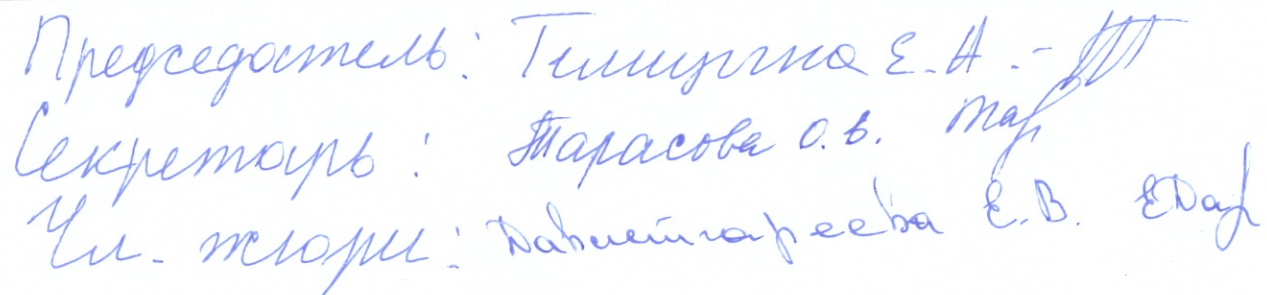 Председатель: Тилицына Е.А. -
Секретарь: Тарасова О.В. Тар
Чл. жюри: Давлетгареева Е.В. ЕДав